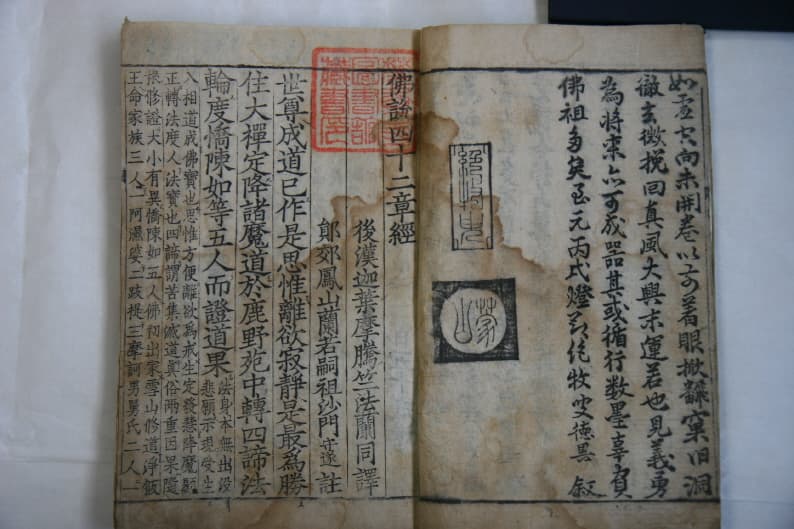 如壹六向未開卷以前着眼掀飜窠臼洞
徹玄微挽回真風大興末運若也見義勇
為將來亦可成器其或循行数墨辜負
佛祖多矣至元丙戌燈節絶牧叟德異 敘
蒙山
佛說四十二章經
後漢迦葉摩騰竺法蘭同譯
郧郊鳳山蘭若嗣祖沙門守遂註
世尊成道已作是思惟離欲寂靜是最爲勝
住大禪定降諸魔道於鹿野苑中轉四諦法
輪度憍陳如等五人而證道果法身本無出沒
悲願示現受生
入相道成佛寶也思惟方便離欲爲戒生定發悲降魔顯
正轉法度人法寶也四諦謂苦集滅道眞俗兩重因果隱
㫰修證大小有異憍陳如五人佛初出家雪山修道淨飯
王命家族三人一阿濕婆二跋提三摩訶男舅氏二人一